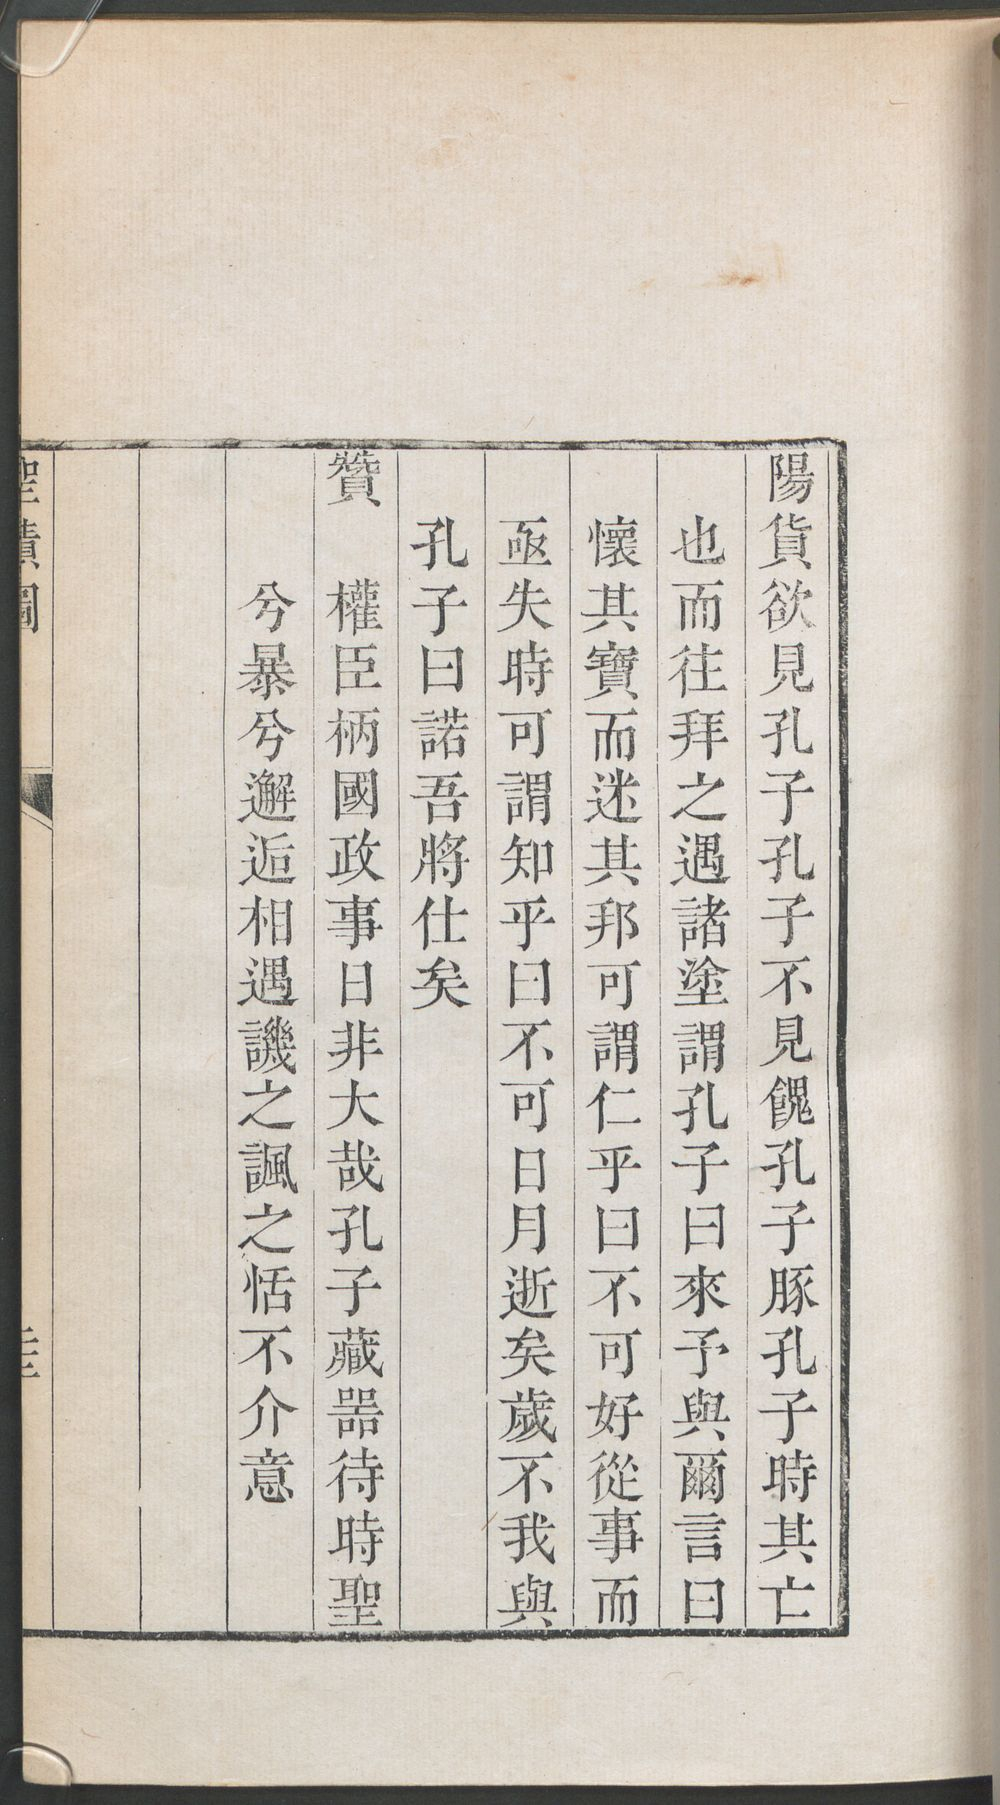 陽貨欲見孔子孔子不見餽孔子豚孔子時其亡
也而往拜之遇諸塗謂孔子曰來予與爾言曰
懷其寶而迷其邦可謂仁乎曰不可好從事而
亟失時可謂知乎曰不可日月逝矣歲不我與
孔子曰諾吾將仕矣
贊　權臣柄國政事日非大哉孔子藏器待時聖
兮暴兮邂逅相遇譏之諷之恬不介意
聖蹟圖